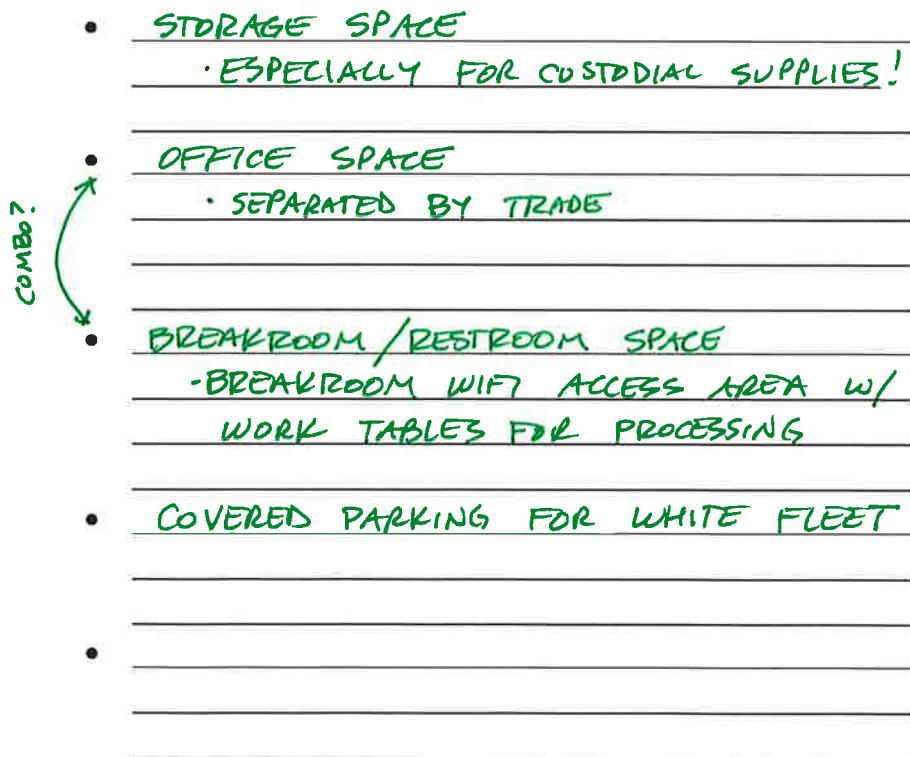 • STORAGE SPACE
· ESPECIALLY FOR CUSTODIAL SUPPLIES!
• OFFICE SPACE
· SEPARATED BY TRADE
COMBO?
• BREAKROOM/RESTROOM SPACE
-BREAKROOM WIFI ACCESS AREA W/
WORK TABLES FOR PROCESSING
• COVERED PARKING FOR WHITE FLEET
•